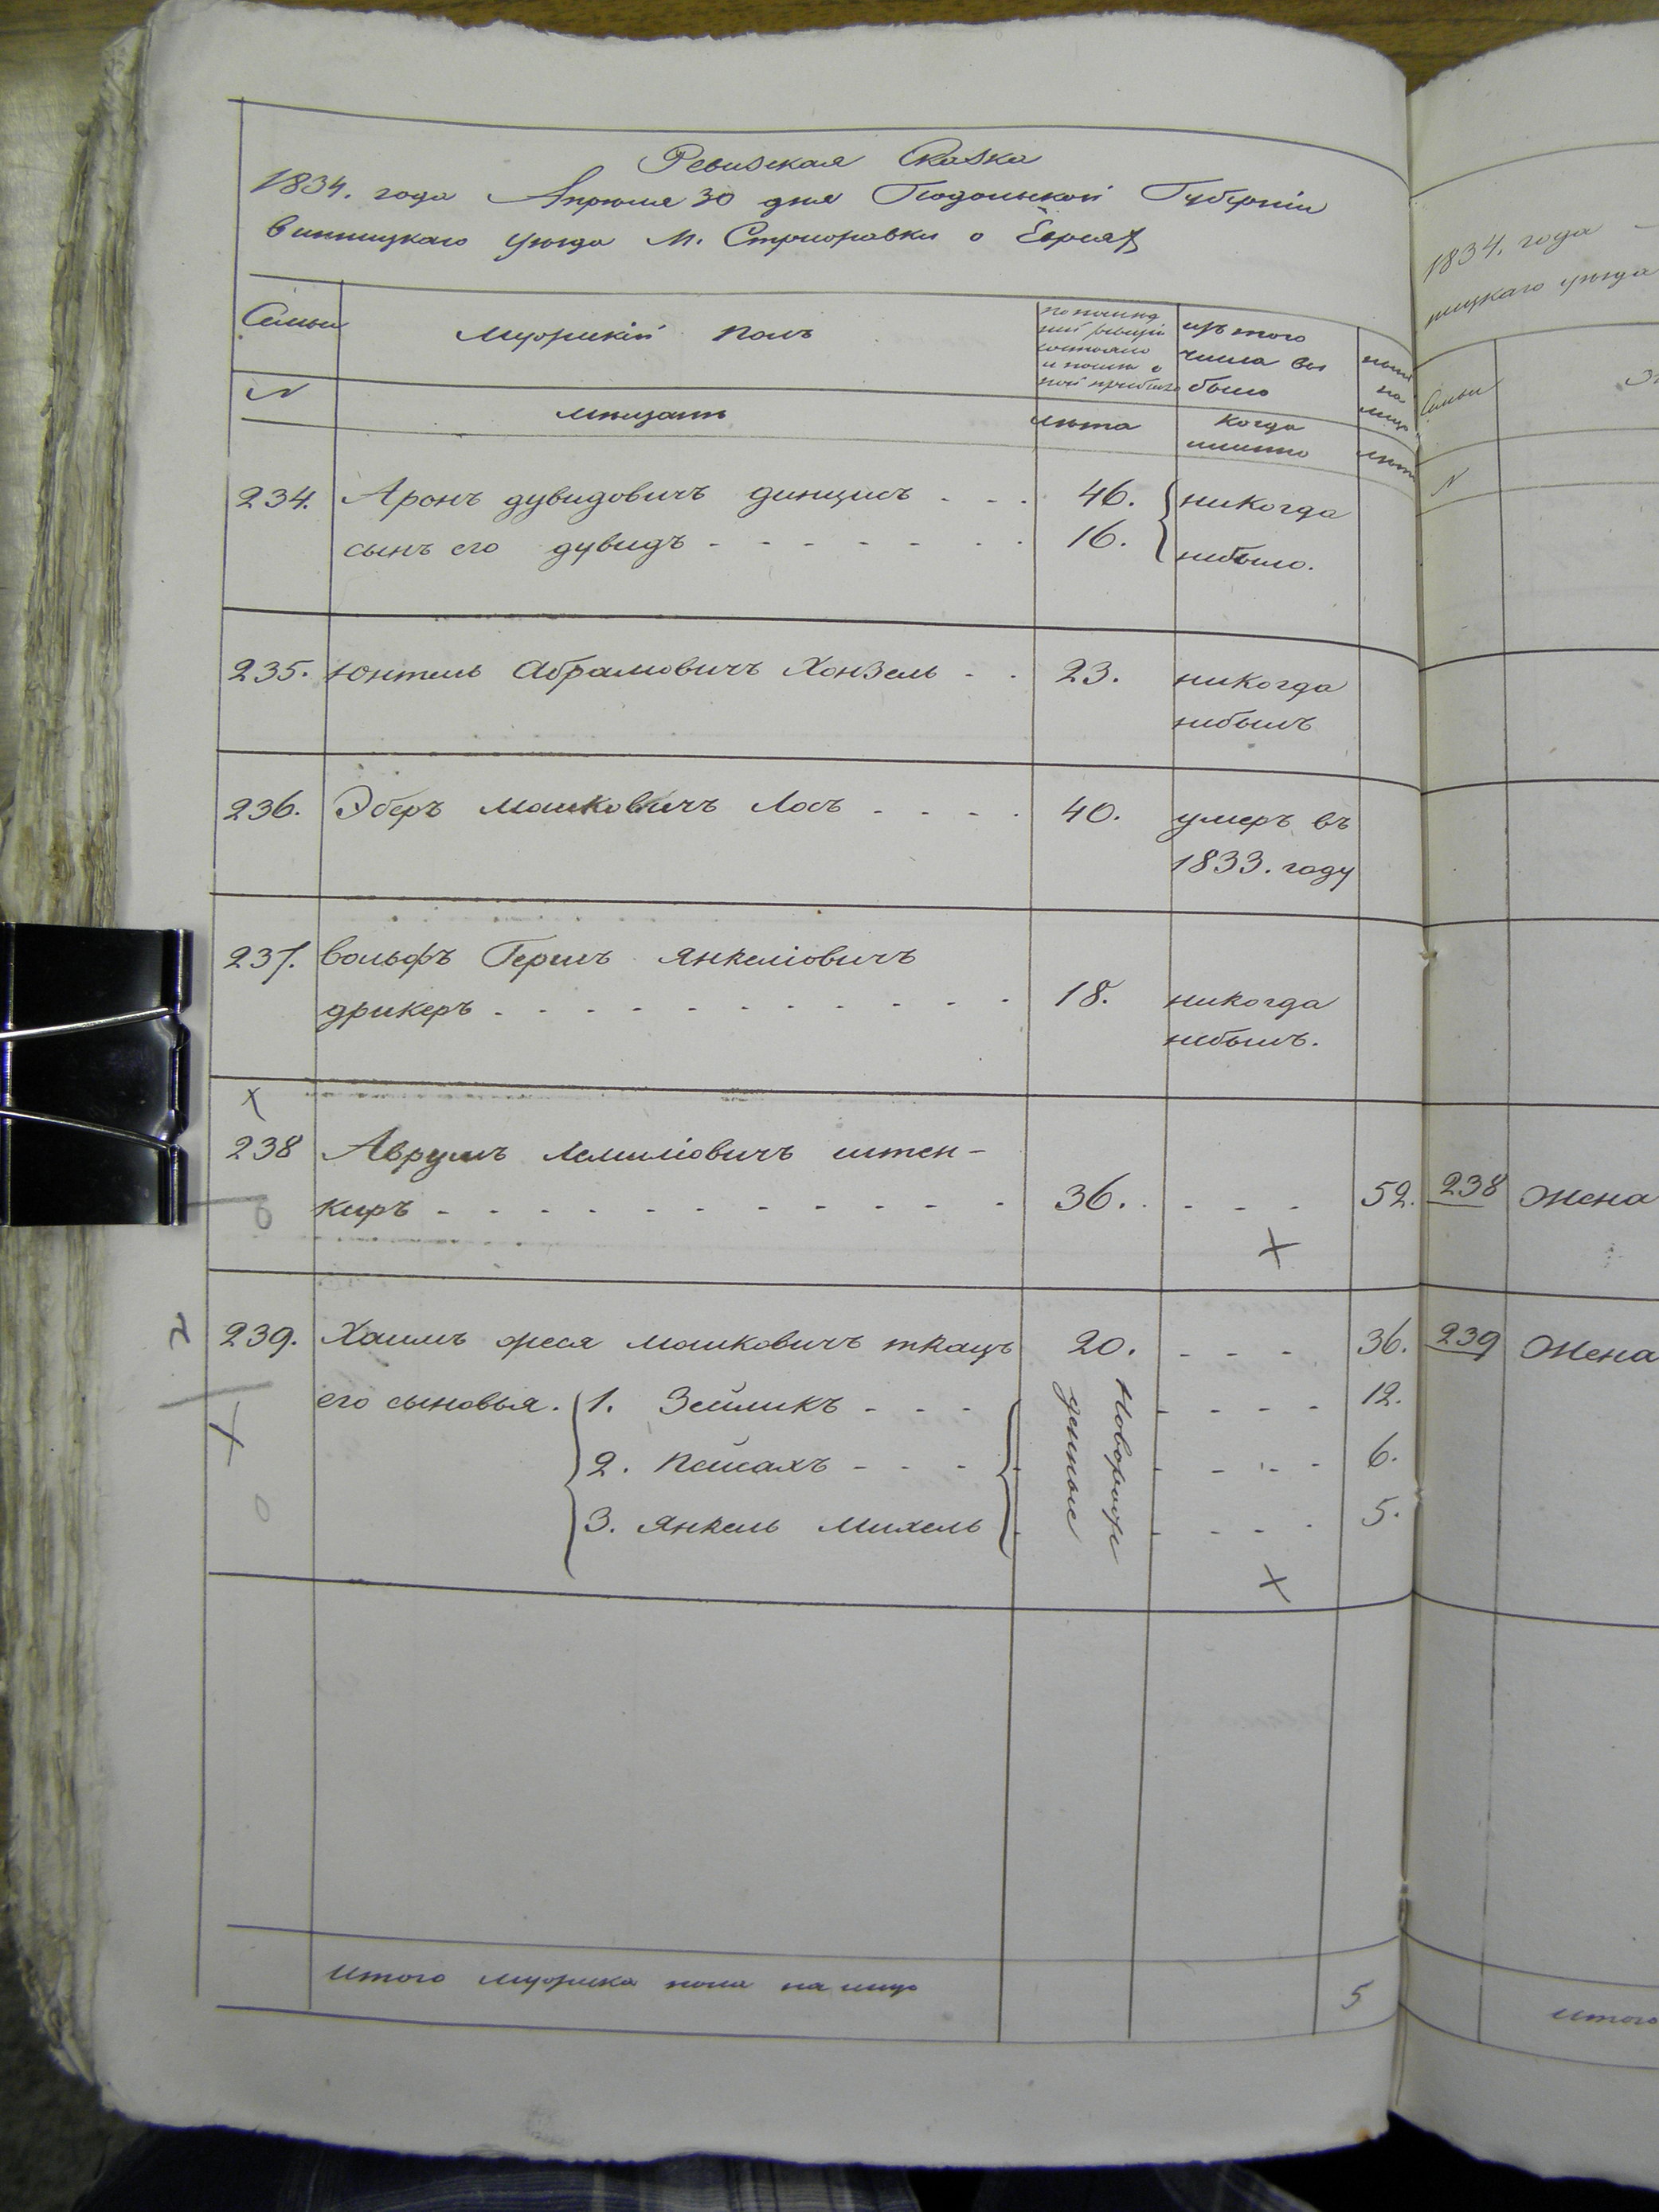 Ревизская Сказка
1834. года Апреля 30 дня Подольской Губерніи
винницкаго уѣзда М. Стрижавки о Евреяхъ
Семьи
Мужескій полъ
по послѣд
ней ревизіи
состояло
и послѣ о
ной прибыло
изъ того
числа вы
было
ныне
на
лицо
N
мѣщанѣ
лѣта
когда
именно
лѣта
234. Аронъ дувидовичъ динцисъ - - - 46. никогда
сынъ его дувидъ - - - - - - - 16. небыло.
235. Юнтель Абрамовичъ Хонзель - - 23. никогда
небылъ
236. Эберъ мошковичъ Лось - - - - 40. умеръ въ
1833. году
237. вольфъ Гершъ янкеліовичъ
дрикеръ - - - - - - - - - - - 18. никогда
небылъ.
х
238 Аврумъ Лемиліовичъ штен-
керъ - - - - - - - - - - - 36. - - - 52.
х
239. Хаимъ мошковичъ ткачъ 20. - - - 36.
его сыновья. 1. Зейликъ - - - - - - - 12.
2. Пейсахъ - - - - - - - - 6.
3. Янкель Михель - - - - 5.
Новорож
денные
х
Итого мужеска пола на лицо 5
1834. года
ницкаго уѣзда
Семьи
N
238 Жена
239 Жена
Итого